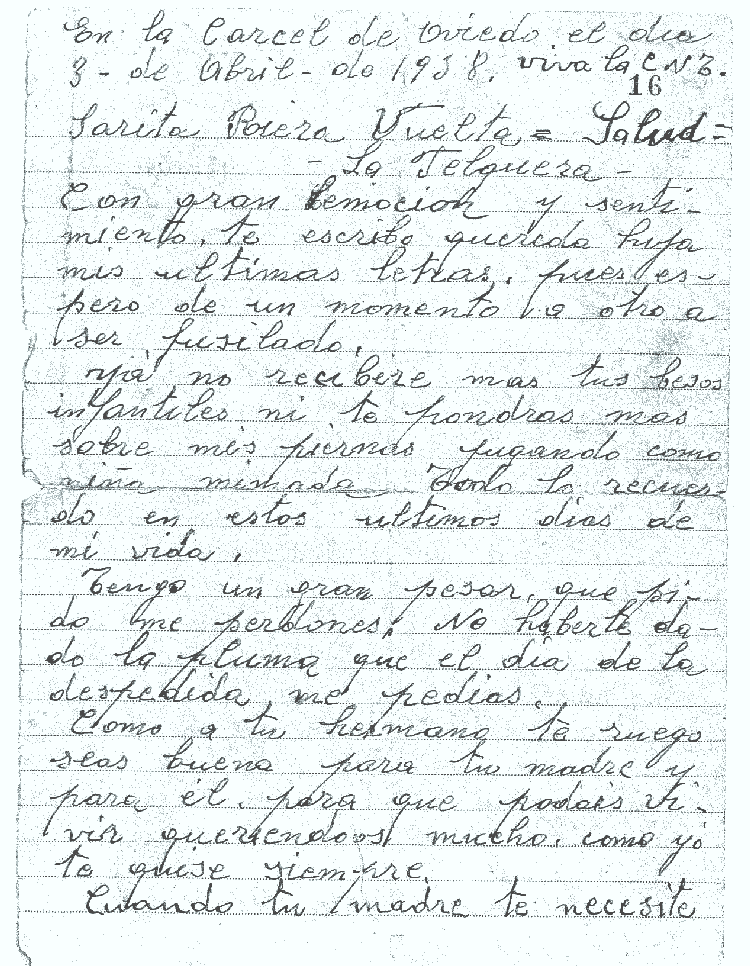 En la Carcel de Oviedo el dia
3 - de Abril - de 1938. viva la C N T.
16
Sarita Vuelta = Salud =
- La Felguera -
Con gran emocion y senti-
miento, te escribo querida hija
mis ultimas letras, pues es-
pero de un momento a otro a
ser fusilado.
Ya no recibere mas tus besos
infantiles ni te pondras mas
sobre mis piernas jugando como
niña mimada Todo lo recuer-
do en estos ultimos dias de
mi vida.
Tengo un gran pesar, que pi-
do me perdones. No haberte da-
do la pluma que el dia de la
despedida me pedias.
Como a tu hermana te ruego
seas buena para tu madre y
para él, para que podais vi-
vir queriendoos mucho, como yo
te quise siempre.
Cuando tu madre te necesite